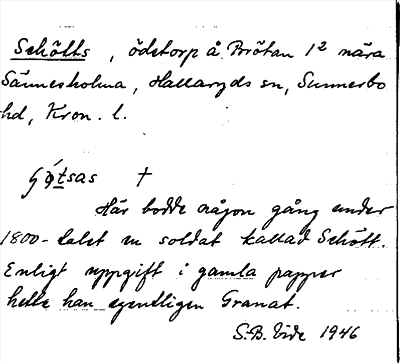 Schötts, ödetorp å Brötan 1² nära
Sännesholma, Hallaryds sn, Sunnerbo
hd, Kron. l.
†
Här bodde någon gång under
1800-talet en soldat kallad Schött.
Enligt uppgift i gamla papper
hette han egentligen Granat.
S.B. Vide 1946